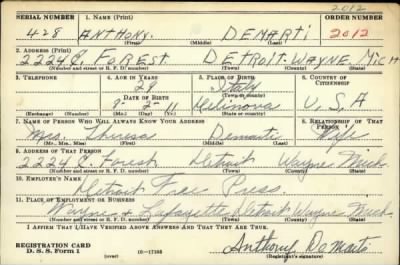 2012
SERIAL NUMBER 1. NAME (Print) ORDER NUMBER
428 ANTHONY. DEMARTI 2012
(First) (Middle) (Last)
2. ADDRESS (Print)
2224 E. FOREST DETROIT. WAYNE. MICH
(Number and street or R. F. D. number) (Town) (County) (State)
3. TELEPHONE 4. AGE IN YEARS 5. PLACE OF BIRTH 6. COUNTRY OF CITIZENSHIP
29 Italy
DATE OF BIRTH (Town or county)
9-2-11 U.S.A
(Exchange) (No.) (Mo.) (Day) (Yr.) (State or country)
7. NAME OF PERSON WHO WILL ALWAYS KNOW YOUR ADDRESS 8. RELATIONSHIP OF THAT PERSON
Mrs. Theresa Demarti Wife
(Mr., Mrs., Miss) (First) (Middle) (Last)
9. ADDRESS OF THAT PERSON
2224 E. Forest Detroit Wayne Mich
(Number and street or R. F. D. number) (Town) (County) (State)
10. EMPLOYER'S NAME
Detroit Free Press.
11. PLACE OF EMPLOYMENT OR BUSINESS
Wayne & Lafayette Detroit Wayne Mich.
(Number and street or R. F. D. number) (Town) (County) (State)
I AFFIRM THAT I HAVE VERIFIED ABOVE ANSWERS AND THAT THEY ARE TRUE.
REGISTRATION CARD
D. S. S. Form 1 (over) 16—17105 Anthony DeMarti
(Registrant's signature)